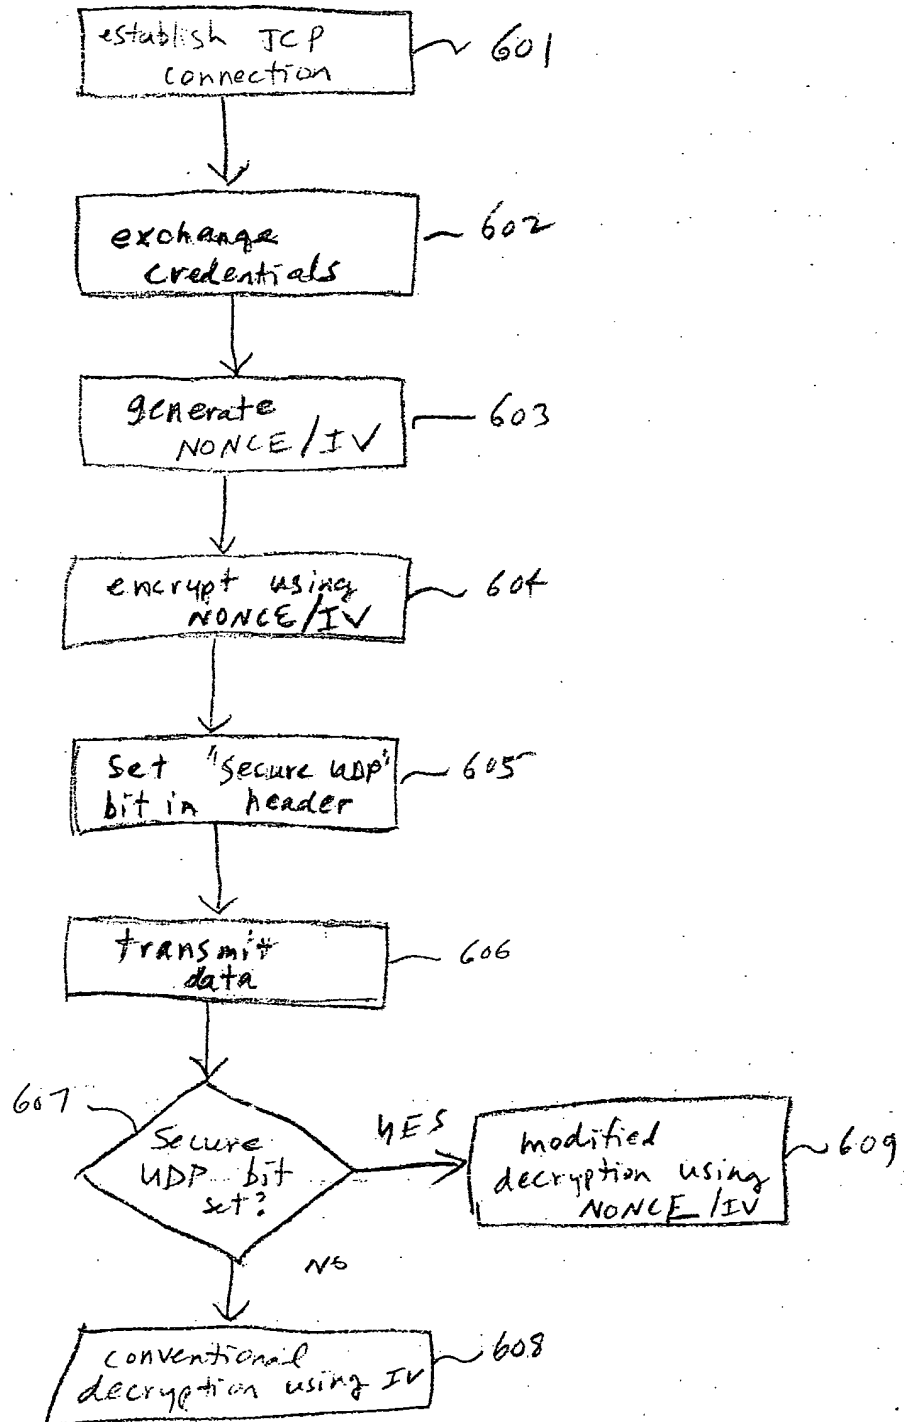 establish TCP
connection
601
exchange
credentials
602
generate
NONCE/IV
603
encrypt using
NONCE/IV
604
Set "Secure UDP"
bit in header
605
transmit
data
606
607
Secure
UDP bit
set?
YES
modified
decryption using
NONCE/IV
609
NO
conventional
decryption using IV
608